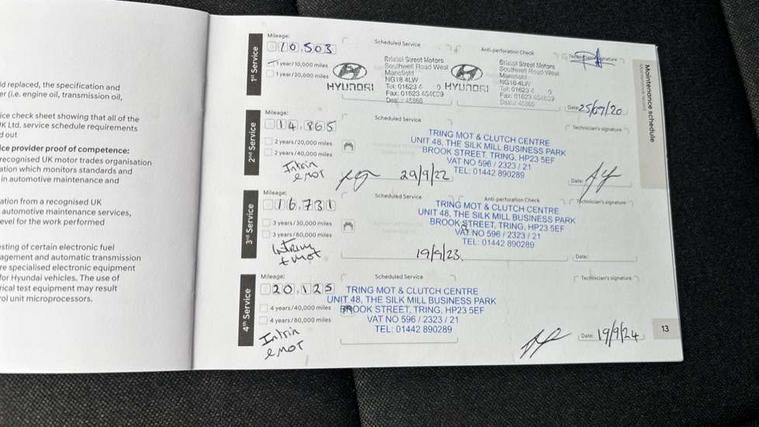 d replaced, the specification and
er (i.e. engine oil, transmission oil,
ice check sheet showing that all of the
K Ltd. service schedule requirements
d out
ce provider proof of competence:
recognised UK motor trades organisation
ation which monitors standards and
in automotive maintenance and
ation from a recognised UK
automotive maintenance services,
evel for the work performed
sting of certain electronic fuel
agement and automatic transmission
re specialised electronic equipment
for Hyundai vehicles. The use of
rical test equipment may result
rol unit microprocessors.
Maintenance schedule
1st Service
Mileage:
10,503
1 year/10,000 miles
1 year/20,000 miles
Scheduled Service
HYUNDAI
Bristol Street Motors
Southwell Road West
Mansfield
NG18 4LW
Anti-perforation Check
HYUNDAI
Bristol Street Motors
Southwell Road West
Mansfield
NG18 4LW
Technician's signature
Date: 25/07/20
2nd Service
Mileage:
14,865
2 years/20,000 miles
2 years/40,000 miles
Intrin
& MOT
Scheduled Service
29/9/22
TRING MOT & CLUTCH CENTRE
UNIT 48, THE SILK MILL BUSINESS PARK
BROOK STREET, TRING, HP23 5EF
VAT NO 596 / 2323 / 21
TEL: 01442 890289
Technician's signature
Date:
3rd Service
Mileage:
16,731
3 years/30,000 miles
3 years/60,000 miles
Intrim
+ MOT
Scheduled Service
19/9/23
Anti-perforation Check
TRING MOT & CLUTCH CENTRE
UNIT 48, THE SILK MILL BUSINESS PARK
BROOK STREET, TRING, HP23 5EF
VAT NO 596 / 2323 / 21
TEL: 01442 890289
Technician's signature
Date:
4th Service
Mileage:
20,125
4 years/40,000 miles
4 years/80,000 miles
Intrin
& MOT
Scheduled Service
TRING MOT & CLUTCH CENTRE
UNIT 48, THE SILK MILL BUSINESS PARK
BROOK STREET, TRING, HP23 5EF
VAT NO 596 / 2323 / 21
TEL: 01442 890289
Technician's signature
Date: 19/9/24
13